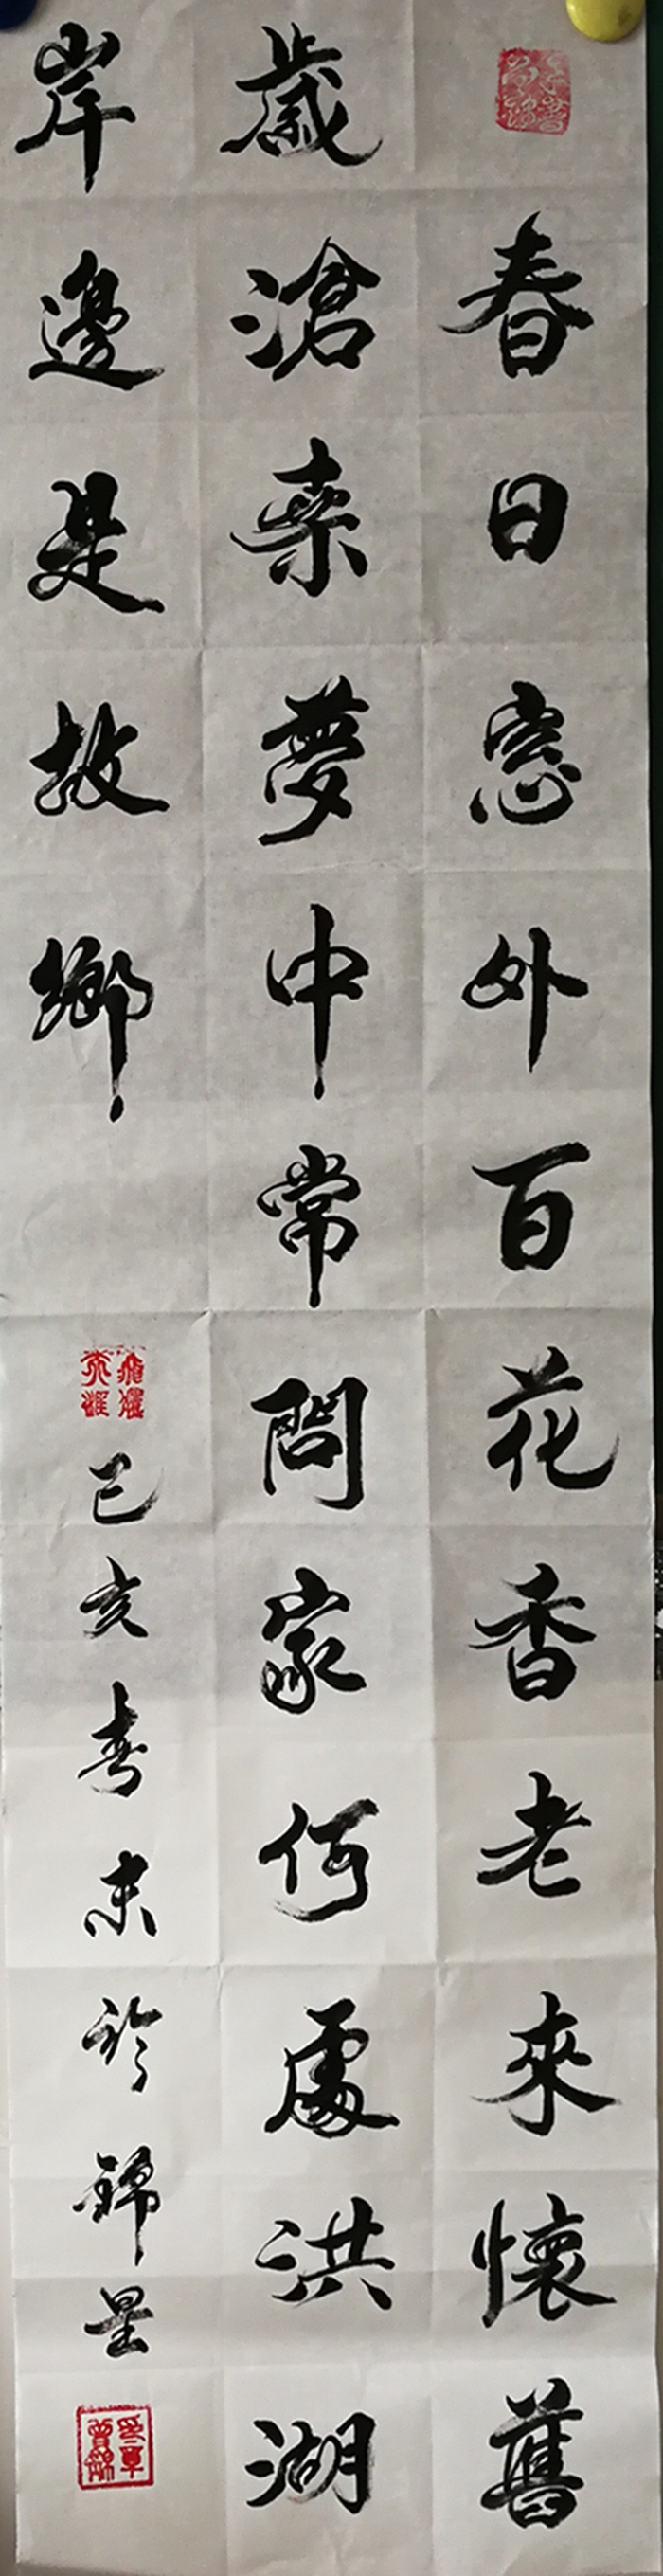 春日窓外百花香老來懷舊
歲滄桒夢中常問家何處洪湖
岸邊是故鄉
己亥春末於錦星